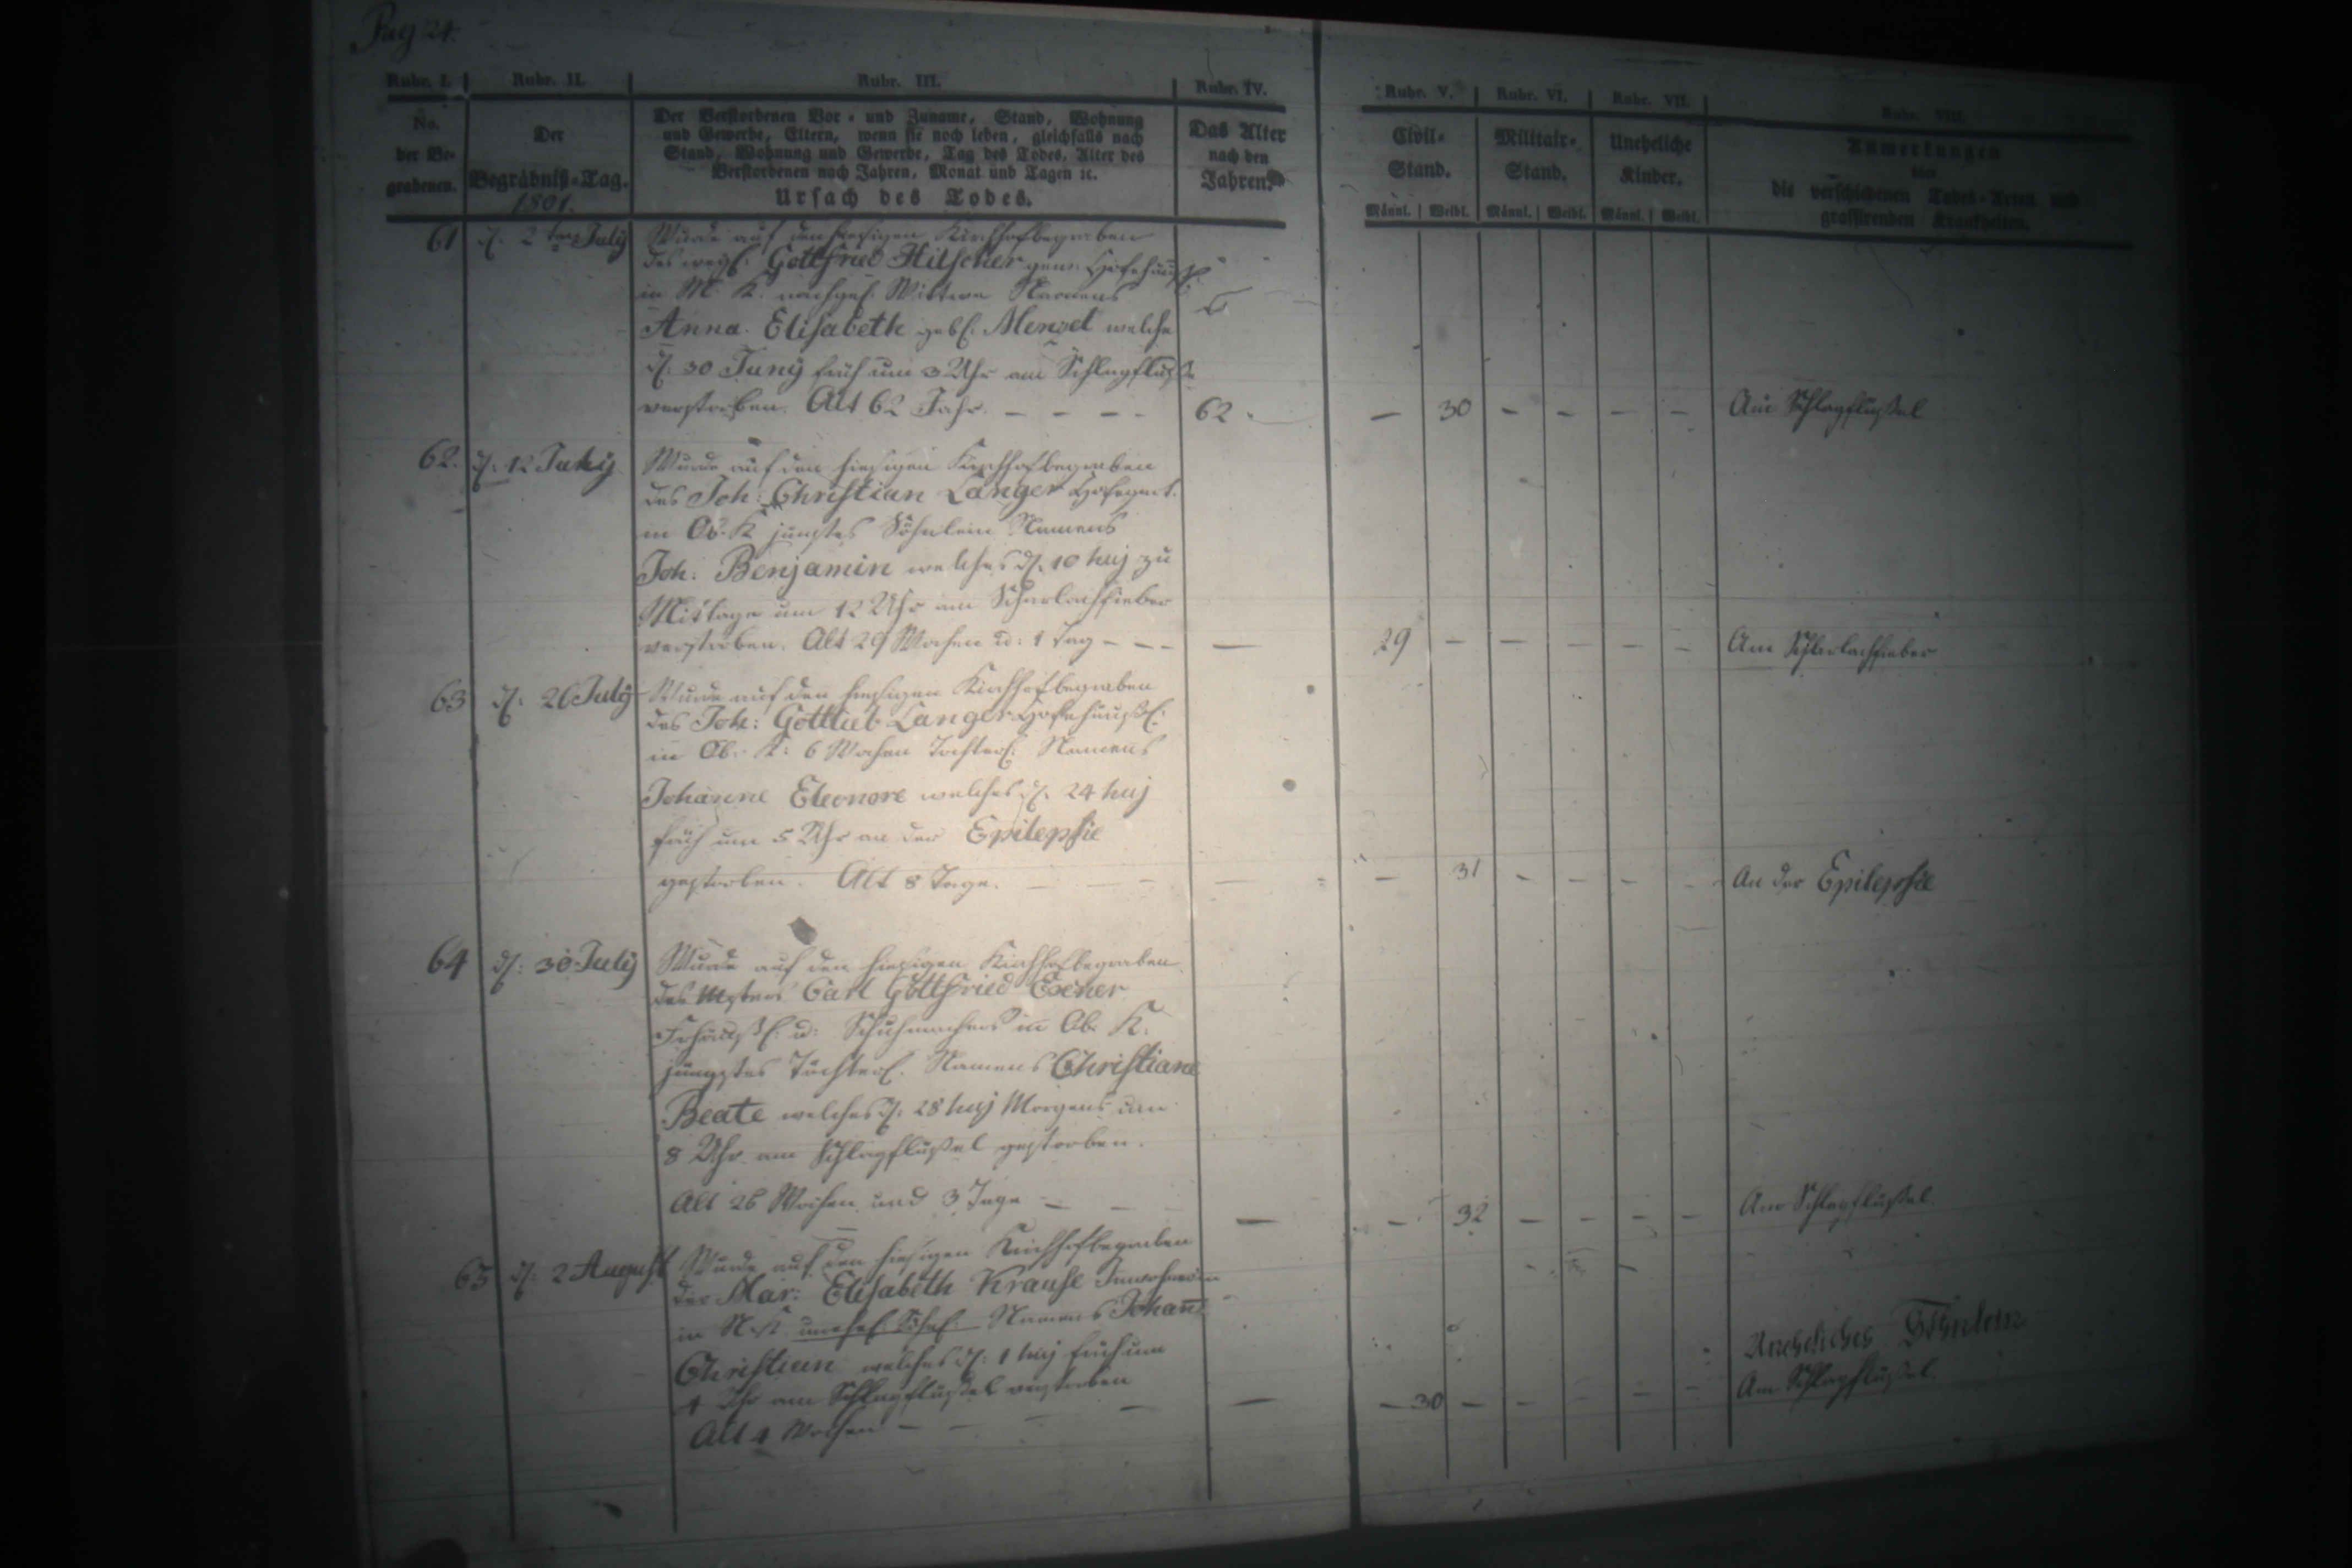 Pag 24.
Rubr. I. Rubr. II. Rubr. III. Rubr. IV. Rubr. V. Rubr. VI. Rubr. VII. Rubr. VIII.
No. der Be-grabenen.
Der Begräbniß-Tag.
1801.
Der Verstorbenen Vor- und Zuname, Stand, Wohnung
und Gewerbe, Eltern, wenn sie noch leben, gleichfalls nach
Stand, Wohnung und Gewerbe, Tag des Todes, Alter des
Verstorbenen nach Jahren, Monat und Tagen ꝛc.
Ursach des Todes.
Das Alter
nach den
Jahren.
Civil-
Stand.
Männl. Weibl.
Militair-
Stand.
Männl. Weibl.
Uneheliche
Kinder.
Männl. Weibl.
Anmerkungen
über
die verschiedenen Todes-Arten und
grassirenden Krankheiten.
61 d. 2ten July Wurde auf den hiesigen Kirchhof begraben
des weyl. Gottfried Hilscher gew. Hofehäusl.
in M. K. nachgel. Wittwe Namens
Anna Elisabeth gebl. Menzel welche
d. 30 Juny früh um 3 Uhr am Schlagfluße
verstorben. Alt 62 Jahr. - - - - 62. - 30 - - - - Am Schlagflußel
62. d. 12 July Wurde auf den hiesigen Kirchhof begraben
des Joh: Christian Langer Hofegärt.
in Ob. K jüngstes Söhnlein Namens
Joh: Benjamin welches d. 10 huj zu
Mittage um 12 Uhr am Scharlachfieber
verstorben. Alt 29 Wochen u: 1 Tag - - - — 29 - - - - - Am Scharlachfieber
63 d. 26 July Wurde auf den hiesigen Kirchhof begraben
des Joh: Gottlieb Langer Hofehäusl:
in Ob. K: 6 Wochen Töchterl: Namens
Johanne Eleonore welches d. 24 huj
früh um 5 Uhr an der Epilepsie
gestorben. Alt 8 Tage. — — — - 31 - - - - An der Epilepsie
64 d: 30 July Wurde auf den hiesigen Kirchhof begraben
des Msters Carl Gottfried Exner
Frhäusl: u: Schuhmachers in Ob. K.
jüngstes Töchterl. Namens Christiane
Beate welches d: 28 huj Morgens um
8 Uhr am Schlagflußel gestorben.
Alt 26 Wochen und 3 Tage - - - — - 32 - - - - Am Schlagflußel.
65 d: 2 August Wurde auf den hiesigen Kirchhof begraben
der Mar: Elisabeth Krause Inwohnerin
in N. K. unehel. Söhnl. Namens Johann
Christian welches d: 1 huj früh um Uneheliches Söhnlein
4 Uhr am Schlagflußel verstorben
Alt 4 Wochen - - - - — - 30 - - - - Am Schlagflußel.